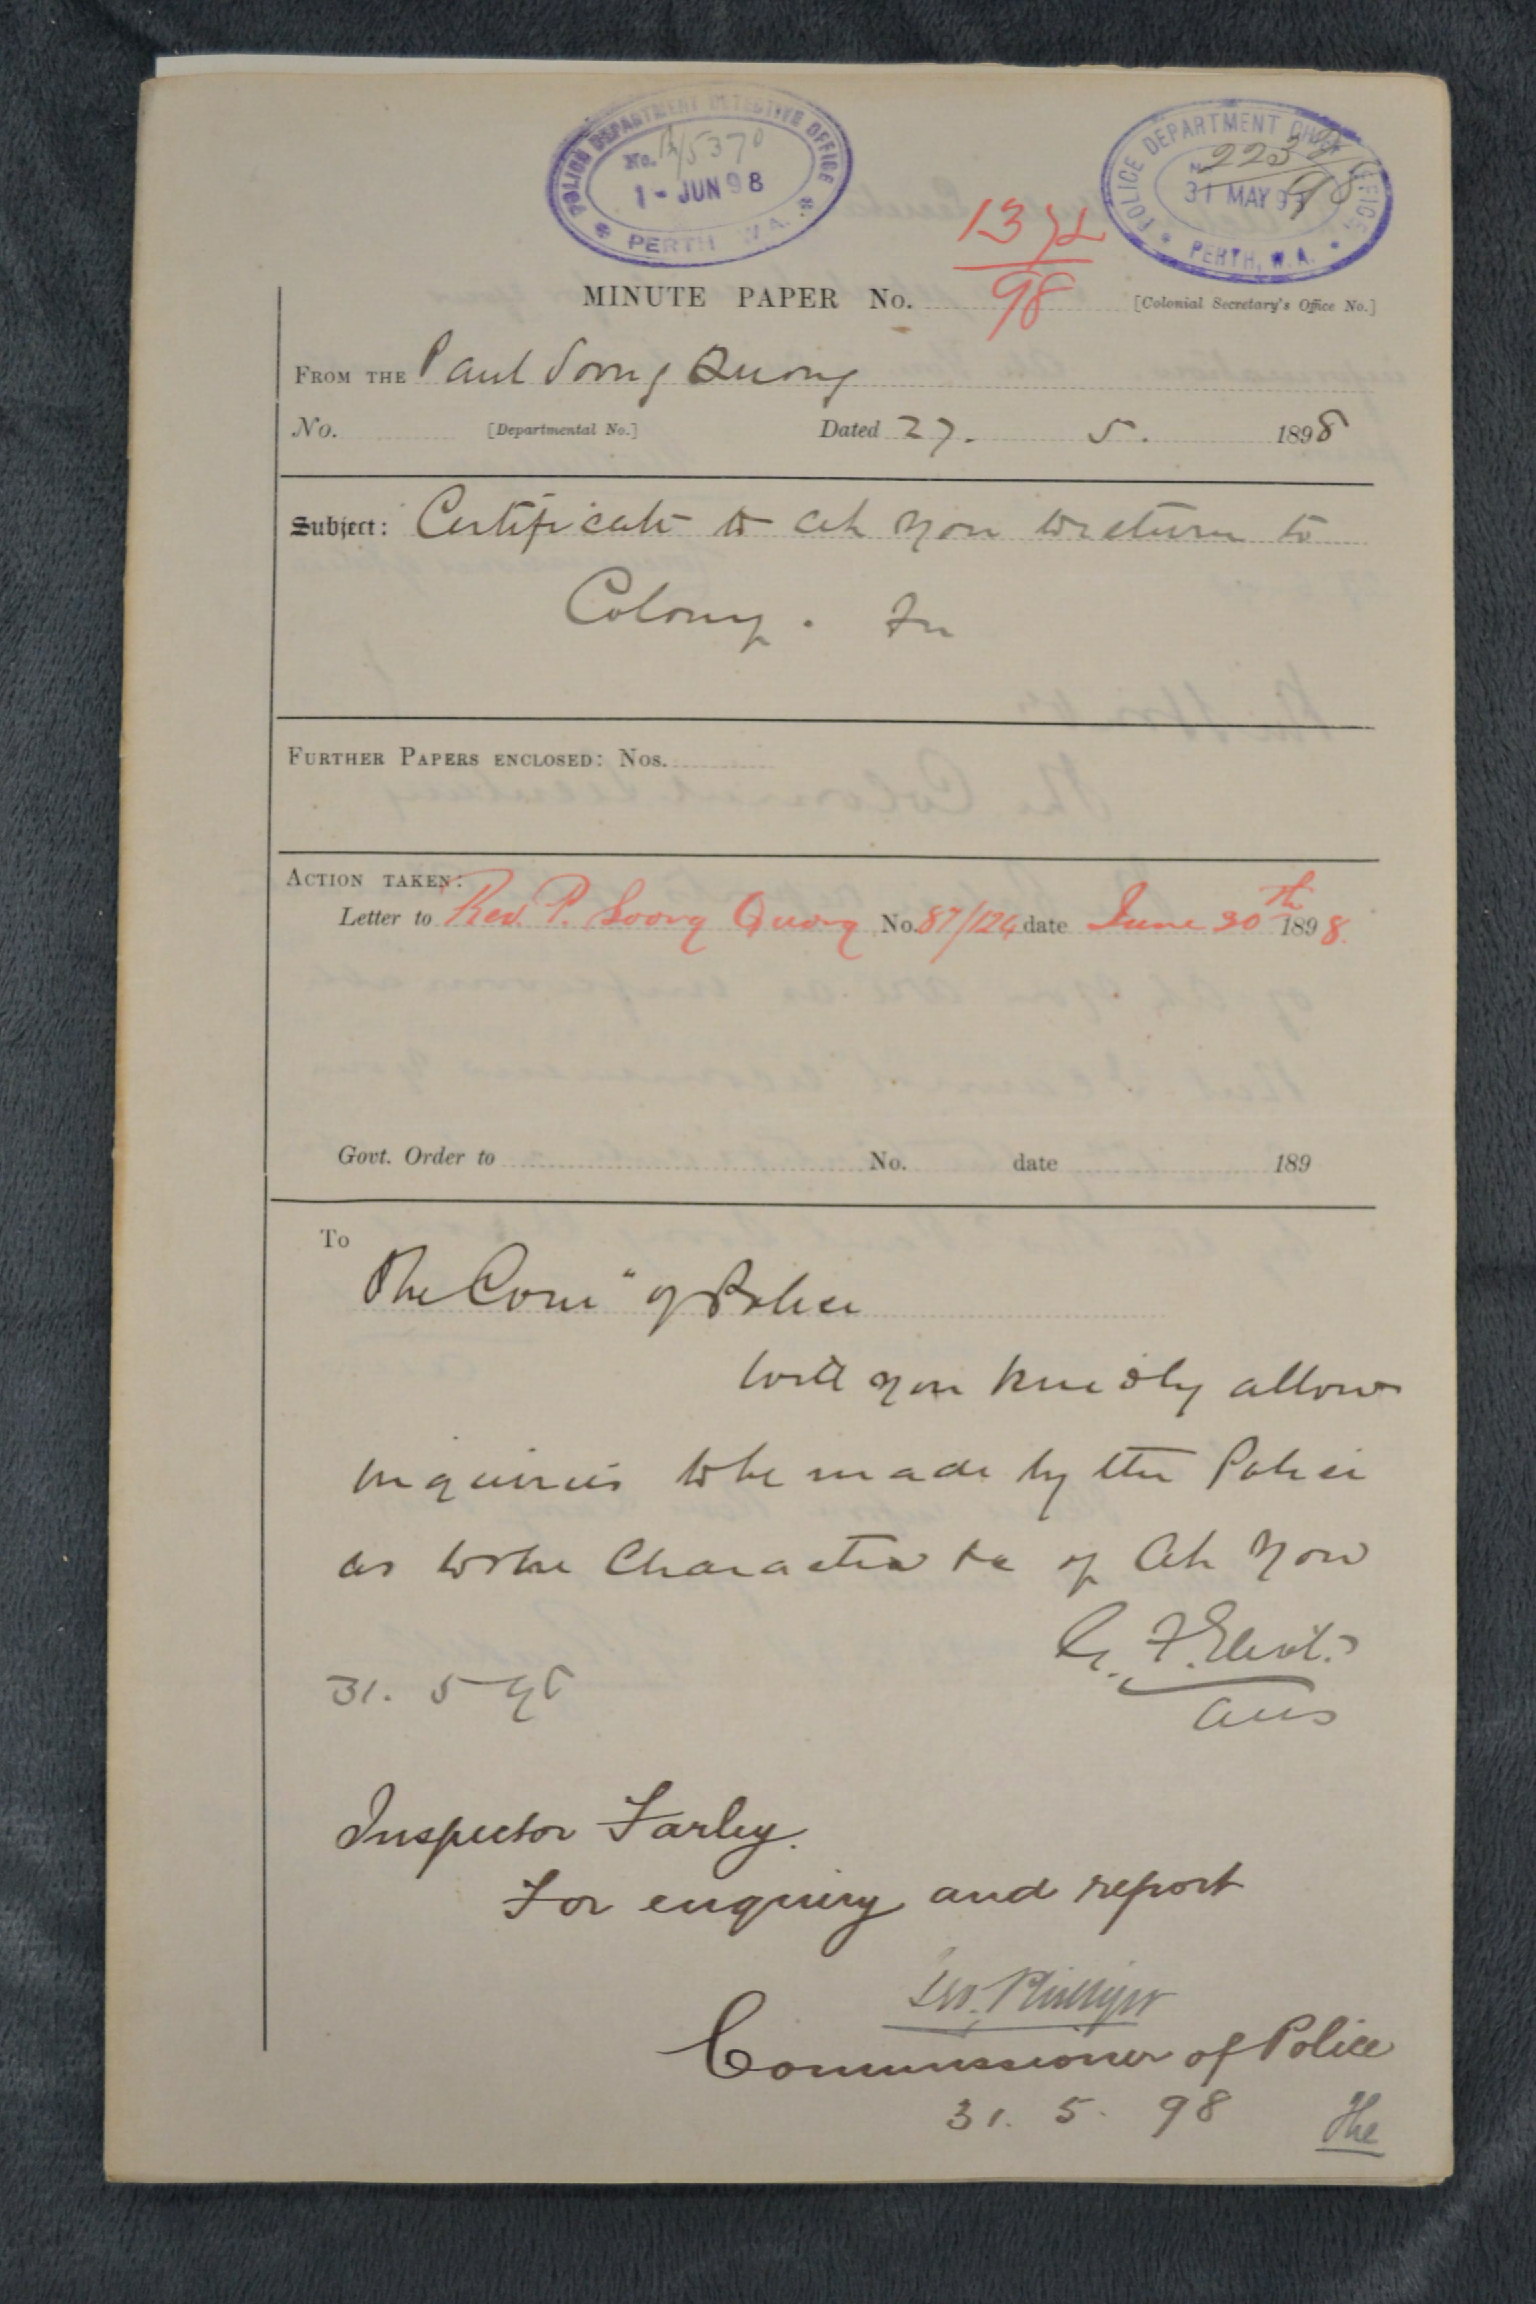 POLICE DEPARTMENT DETECTIVE OFFICE
No. 5370
1 - JUN 98
PERTH W.A.
POLICE DEPARTMENT CHIEF OFFICE
No. 2238/98
31 MAY 98
PERTH, W.A.
MINUTE PAPER No. 1372/98 [Colonial Secretary's Office No.]
FROM THE Paul Soong Quong
No. [Departmental No.] Dated 27. 5. 1898
Subject: Certificate to Ah You to return to
Colony.
FURTHER PAPERS ENCLOSED: Nos.
ACTION TAKEN:
Letter to Rev. P. Soong Quong No. 87/124 date June 30th 1898.
Govt. Order to No. date 189
To
The Com" of Police
Will you kindly allow
inquiries to be made by the Police
as to the Character &c of Ah You
31. 5 98
Inspector Farley.
For enquiry and report
Geo. Phillips
Commissioner of Police
31. 5. 98 The